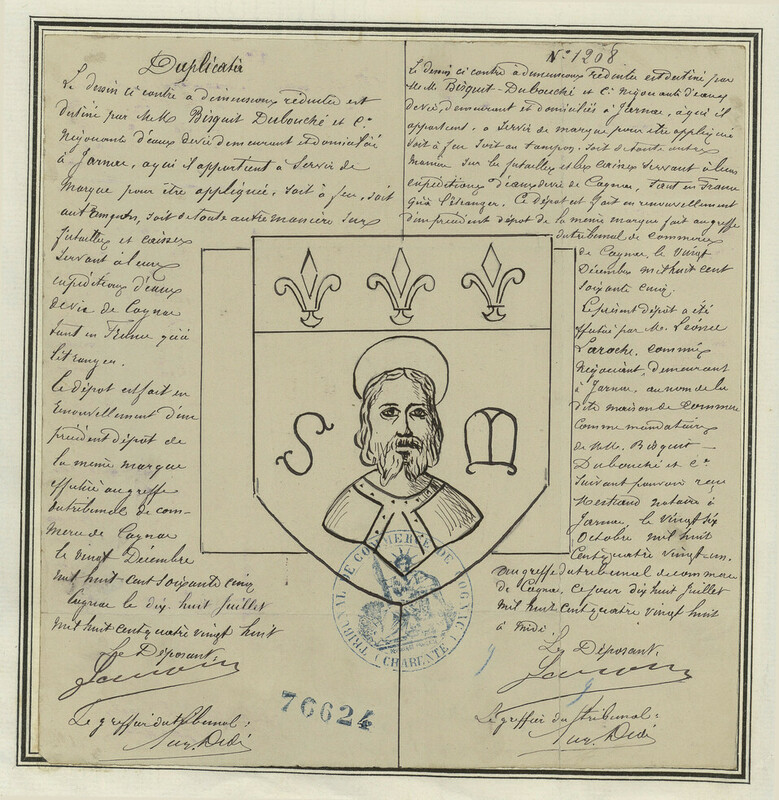 Duplicata
Le dessin ci contre à dimensions réduites est
destiné par MM Bisquit Dubouché et Cie
Négociants d'eaux de vie demeurant et domiciliés
à Jarnac, à qui il appartient à servir de
Marque pour être appliquée, soit à feu, soit
aux tampons, soit de toute autre manière sur
futailles et caisses
servant à leurs
expéditions d'eaux
de vie de Cognac
tant en France qu'à
l'étranger.
Le dépôt est fait en
renouvellement d'un
précédent dépôt de
la même marque
effectué au greffe
du tribunal de com-
merce de Cognac
le vingt Décembre
mil huit cent soixante cinq
Cognac le dix huit Juillet
mil huit cent quatre vingt huit
Le Déposant,
Le greffier du tribunal :
No 1208
Le dessin ci contre à dimensions réduites est destiné par
MM. Bisquit-Dubouché et Cie négociants d'eaux
de vie, demeurant et domiciliés à Jarnac, à qui il
appartient, à servir de marque pour être appliquée
soit à feu soit au tampon, soit de toute autre
manière sur les futailles et les caisses servant à leurs
expéditions d'eaux de vie de Cognac, tant en France
qu'à l'étranger. Ce dépôt est fait en renouvellement
d'un précédent dépôt de la même marque fait au greffe
du tribunal de commerce
de Cognac, le vingt
Décembre mil huit cent
soixante cinq.
Le présent dépôt a été
effectué par M. Léonce
Laroche, commis
Négociant, demeurant
à Jarnac, au nom de la
dite maison de commerce
comme mandataire
de MM. Bisquit
Dubouché et Cie
suivant pouvoir reçu
notaire à
Jarnac, le vingt six
Octobre mil huit
cent quatre vingt-un.
au greffe du tribunal de commerce
de Cognac, ce jour dix huit Juillet
mil huit cent quatre vingt huit
à midi
Le Déposant,
Le greffier du tribunal :
S M
TRIBUNAL DE COMMERCE DE COGNAC
(CHARENTE)
76624